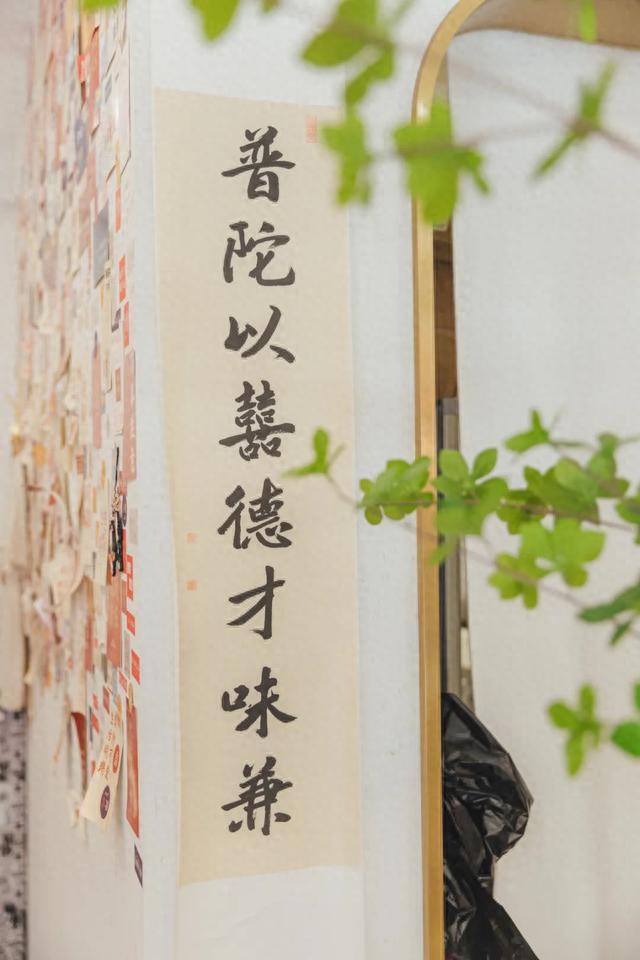 普陀以囍德才味兼